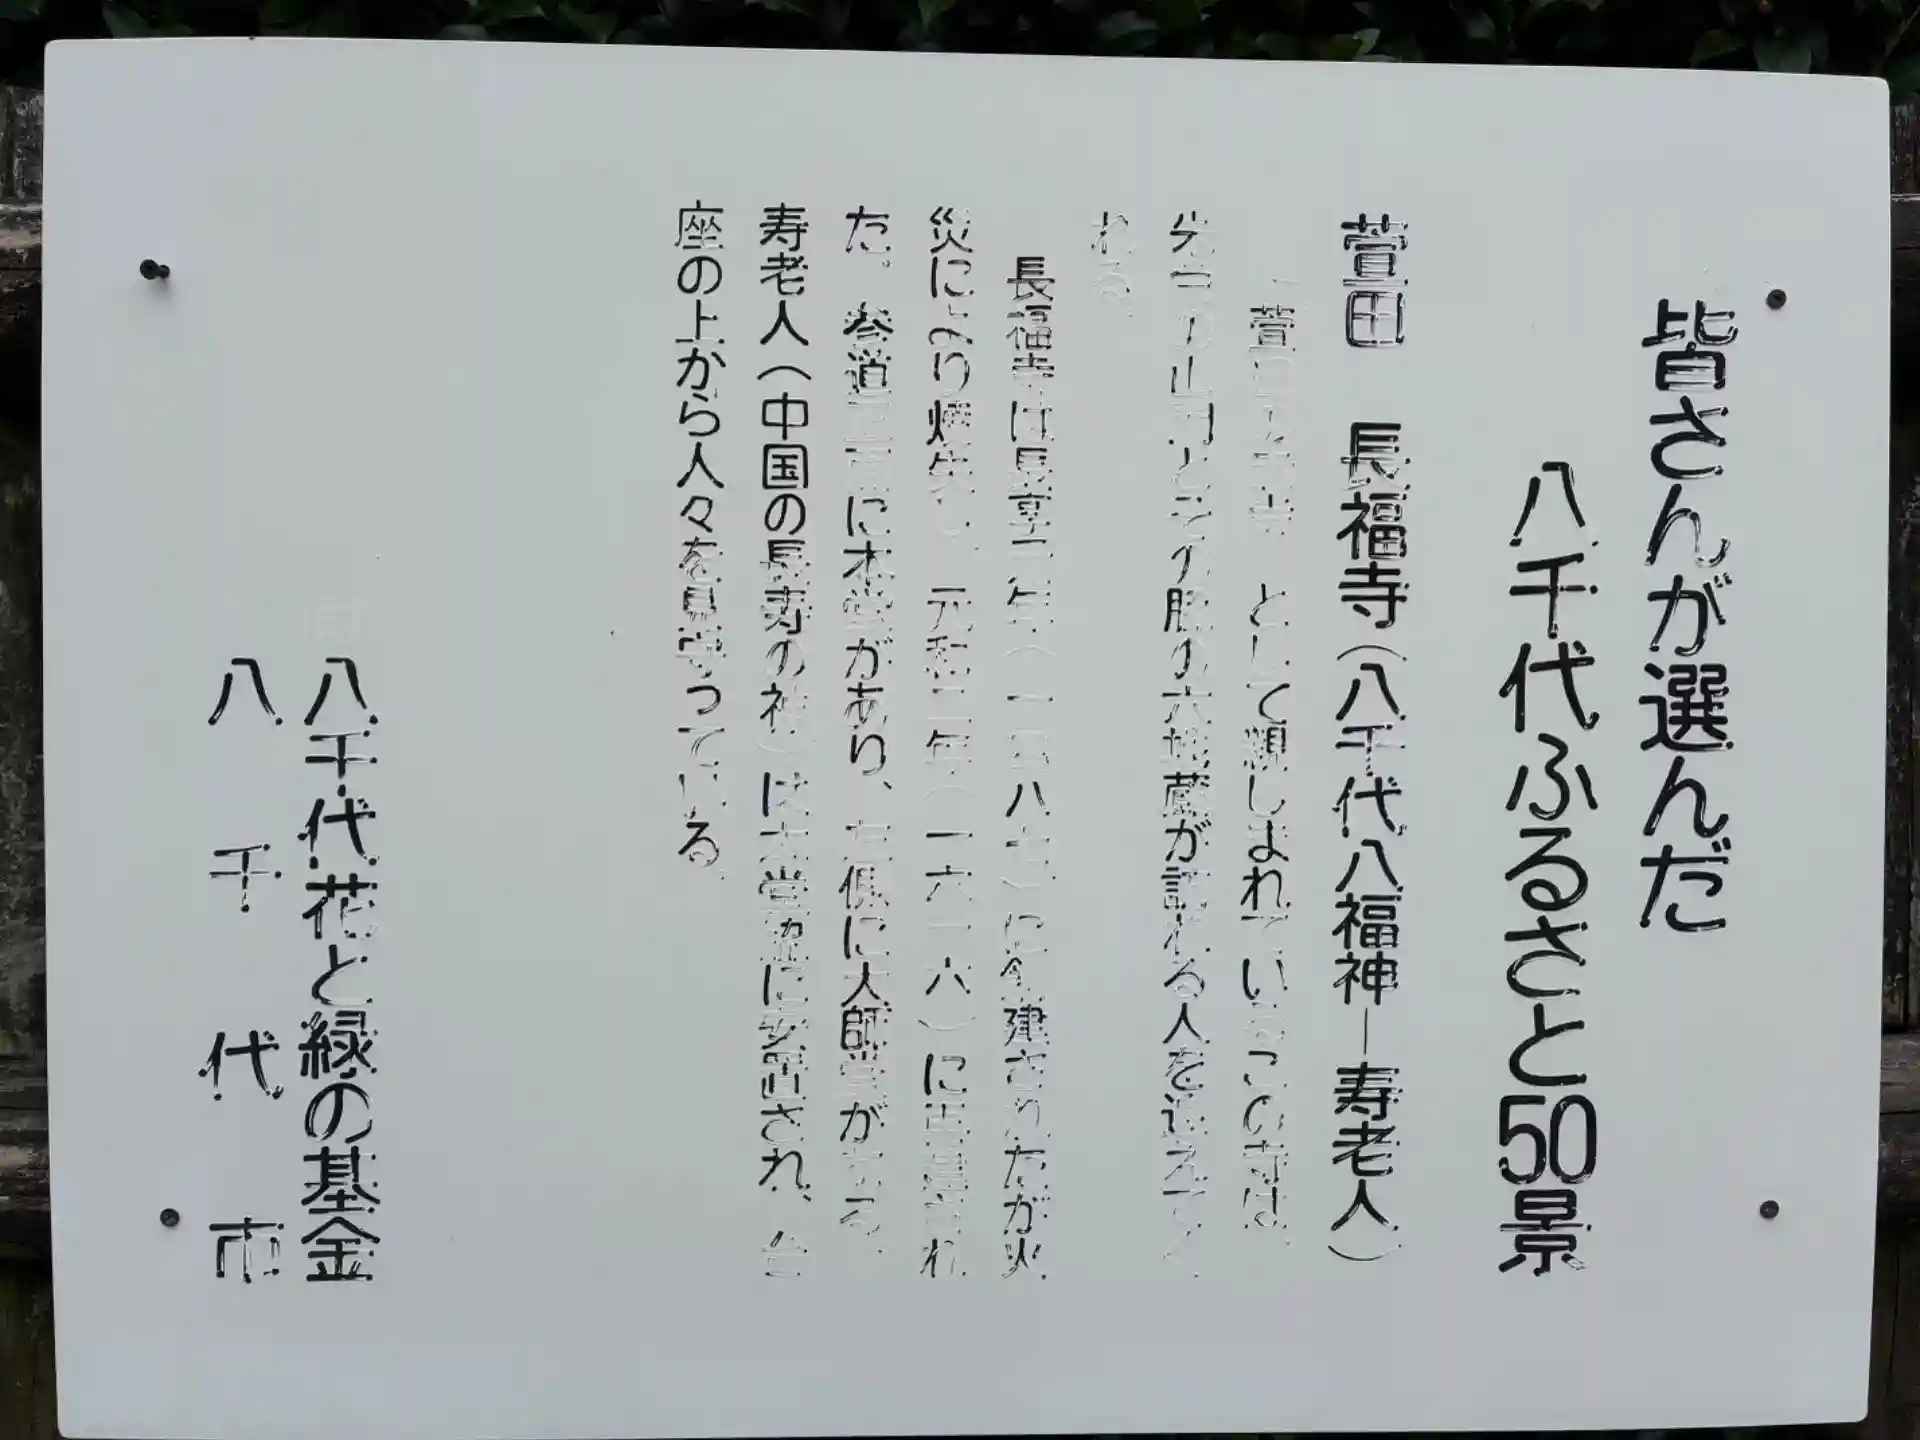 皆さんが選んだ
八千代ふるさと50景
萱田 長福寺（八千代八福神―寿老人）
として親しまれているこの寺は、
山門とその脇の六地蔵が訪れる人を迎えてく
れる。
長福寺は長享元年（一四八七）に創建されたが火
災により焼失し、元和二年（一六一六）に再建され
た。参道正面に本堂があり、左側に大師堂がある。
寿老人（中国の長寿の神）は本堂脇に安置され、台
座の上から人々を見守っている。
八千代花と緑の基金
八千代市